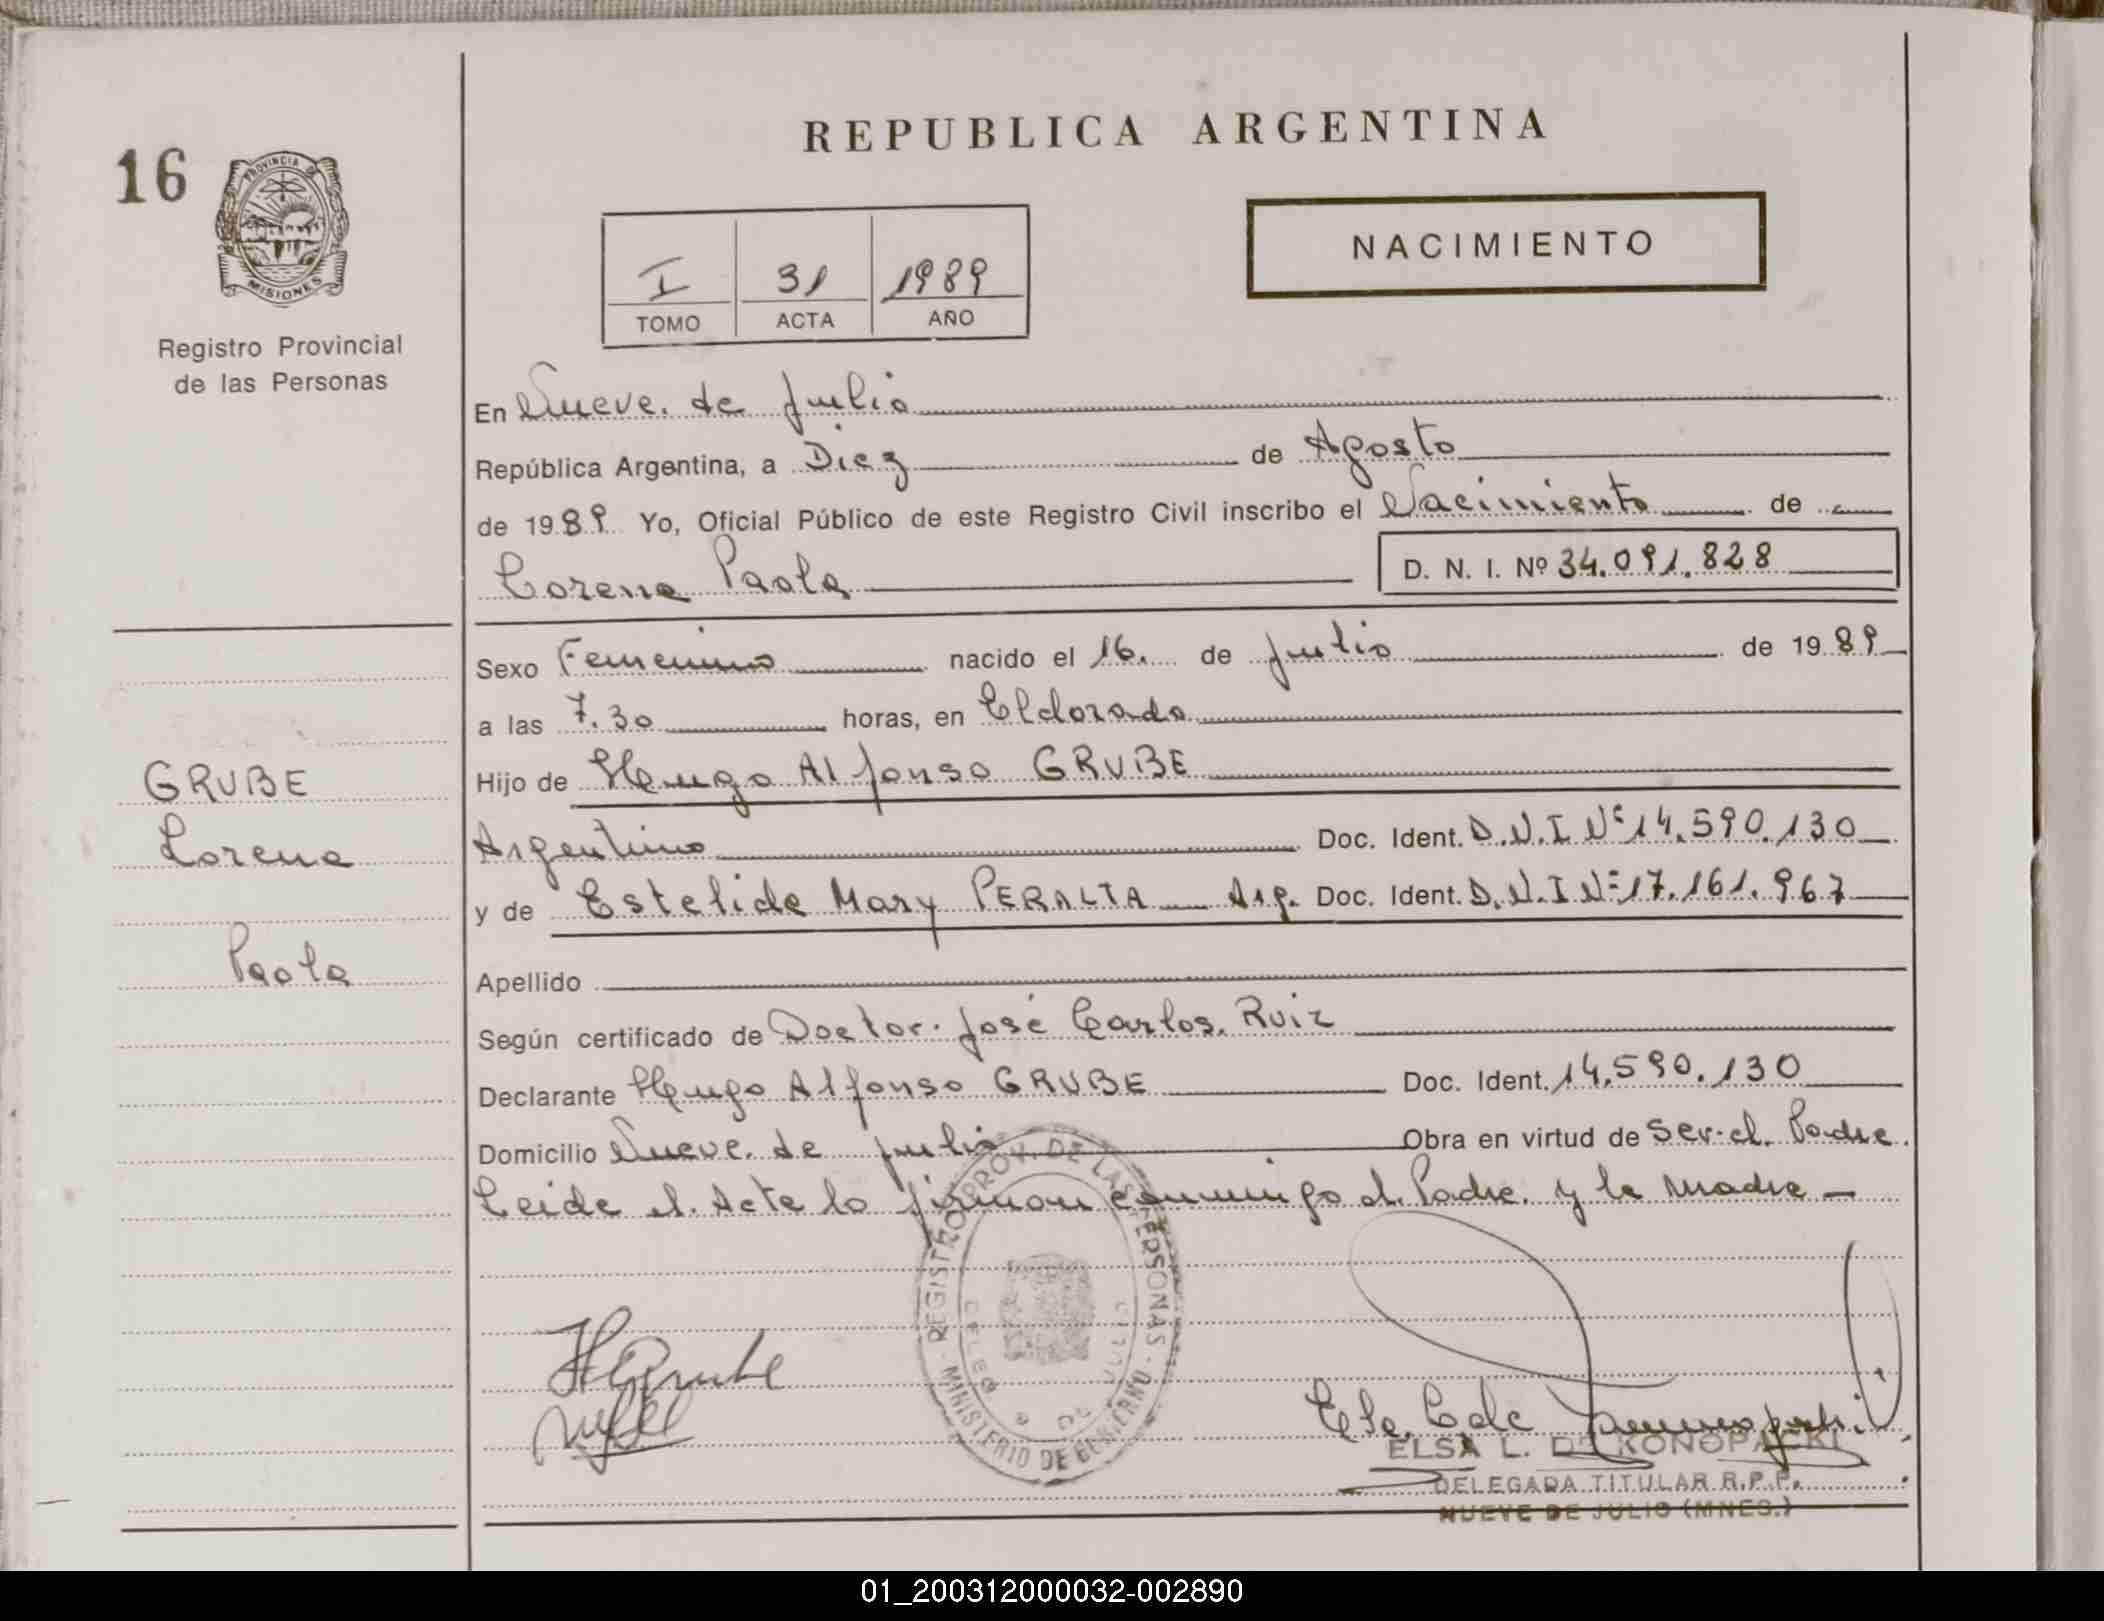 REPUBLICA ARGENTINA
16
PROVINCIA DE
MISIONES
Registro Provincial
de las Personas
I 31 1989
TOMO ACTA AÑO
NACIMIENTO
En Nueve de Julio
República Argentina, a Diez de Agosto
de 1989 Yo, Oficial Público de este Registro Civil inscribo el Nacimiento de
Lorena Paola D. N. I. Nº 34.091.828
Sexo Femenino nacido el 16. de Julio de 1989
a las 7.30 horas, en Eldorado
Hijo de Hugo Alfonso GRUBE
Argentino Doc. Ident. D.N.I Nº 14.590.130
y de Estelide Mary PERALTA Arg. Doc. Ident. D.N.I Nº 17.161.967
Apellido
Según certificado de Doctor José Carlos Ruiz
Declarante Hugo Alfonso GRUBE Doc. Ident. 14.590.130
Domicilio Nueve de Julio Obra en virtud de Ser el Padre.
Leida el Acta lo firman conmigo el Padre y la Madre —
GRUBE
Lorena
Paola
REGISTRO PROV. DE LAS PERSONAS
MINISTERIO DE GOBIERNO
HGrube
ELSA L. DE KONOPACKI
DELEGADA TITULAR R.P.P.
NUEVE DE JULIO (MNES.)
01_200312000032-002890